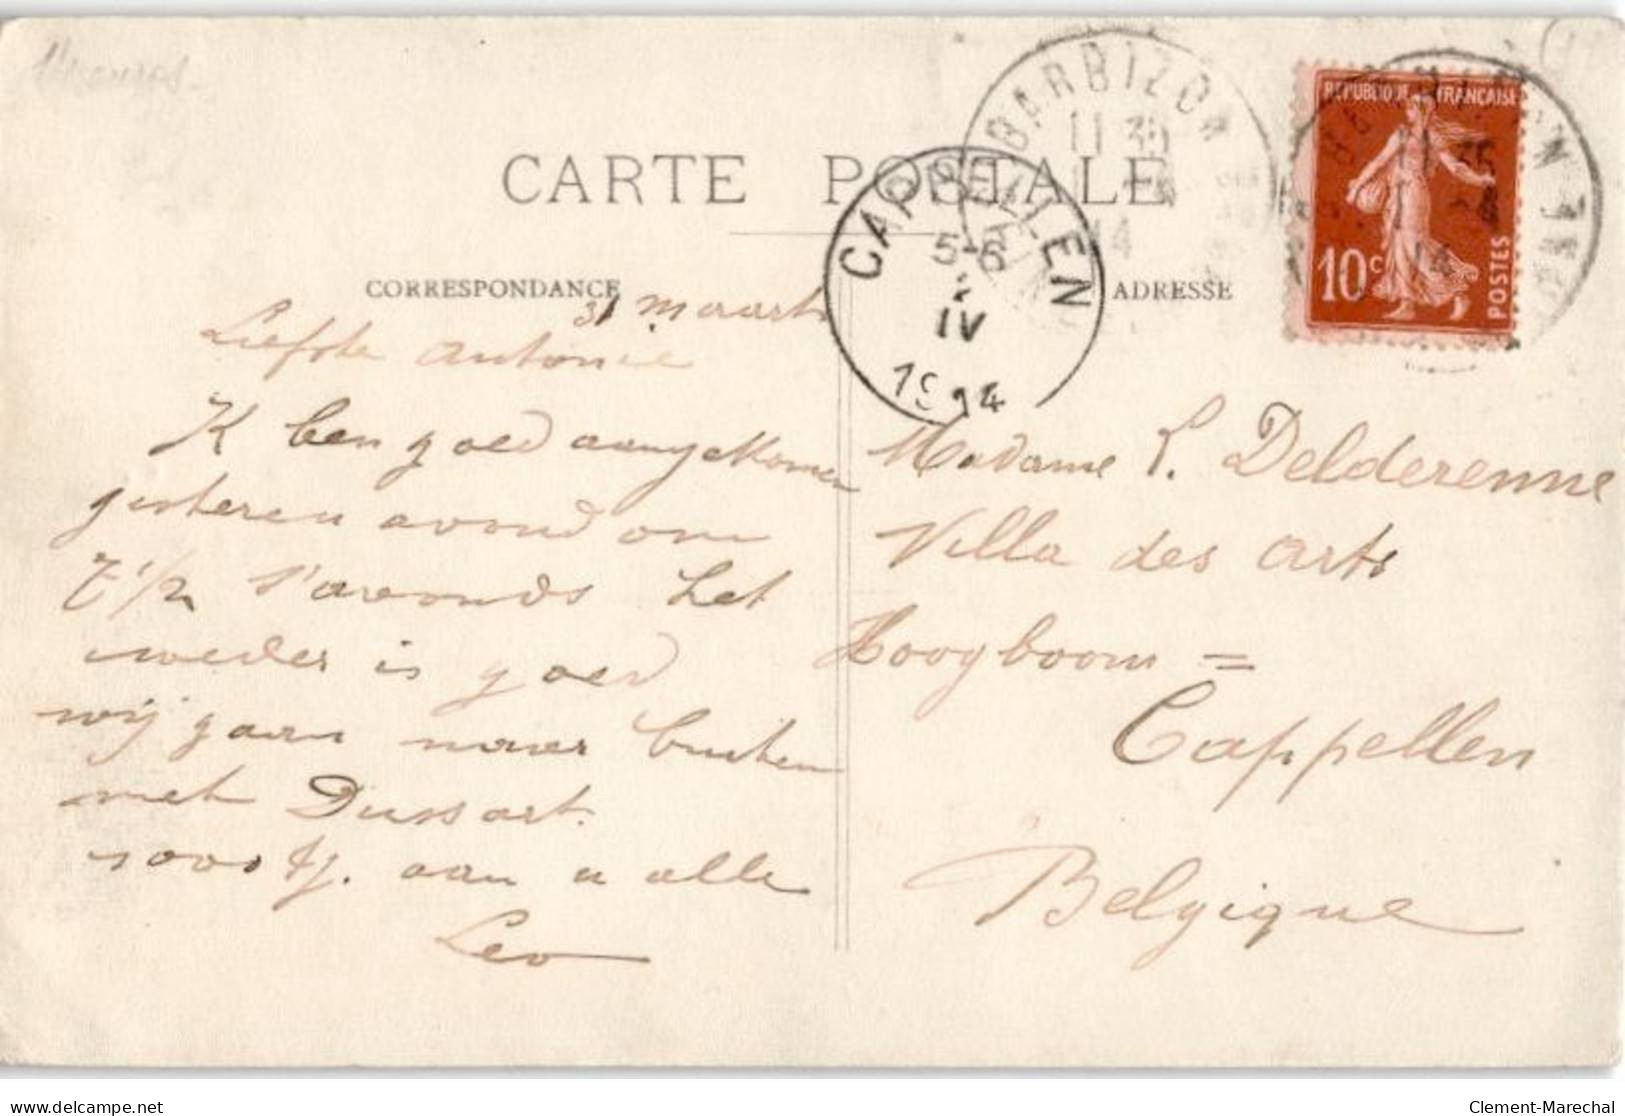 CARTE POSTALE
CORRESPONDANCE
ADRESSE
BARBIZON
11 35
14
CAPPELLEN
5-6
2
IV
1914
REPUBLIQUE FRANCAISE
10c
POSTES
31 Maart
Liefste Antonie
K ben goed aangekomen
gisteren avond om
7 1/2 s'avonds het
weder is goed
wij gaan naar buiten
met Dussart.
aan u alle
Leo
Madame L. Delderenne
Villa des Arts
Hoogboom =
Cappellen
Belgique
delcampe.net
Clement-Marechal